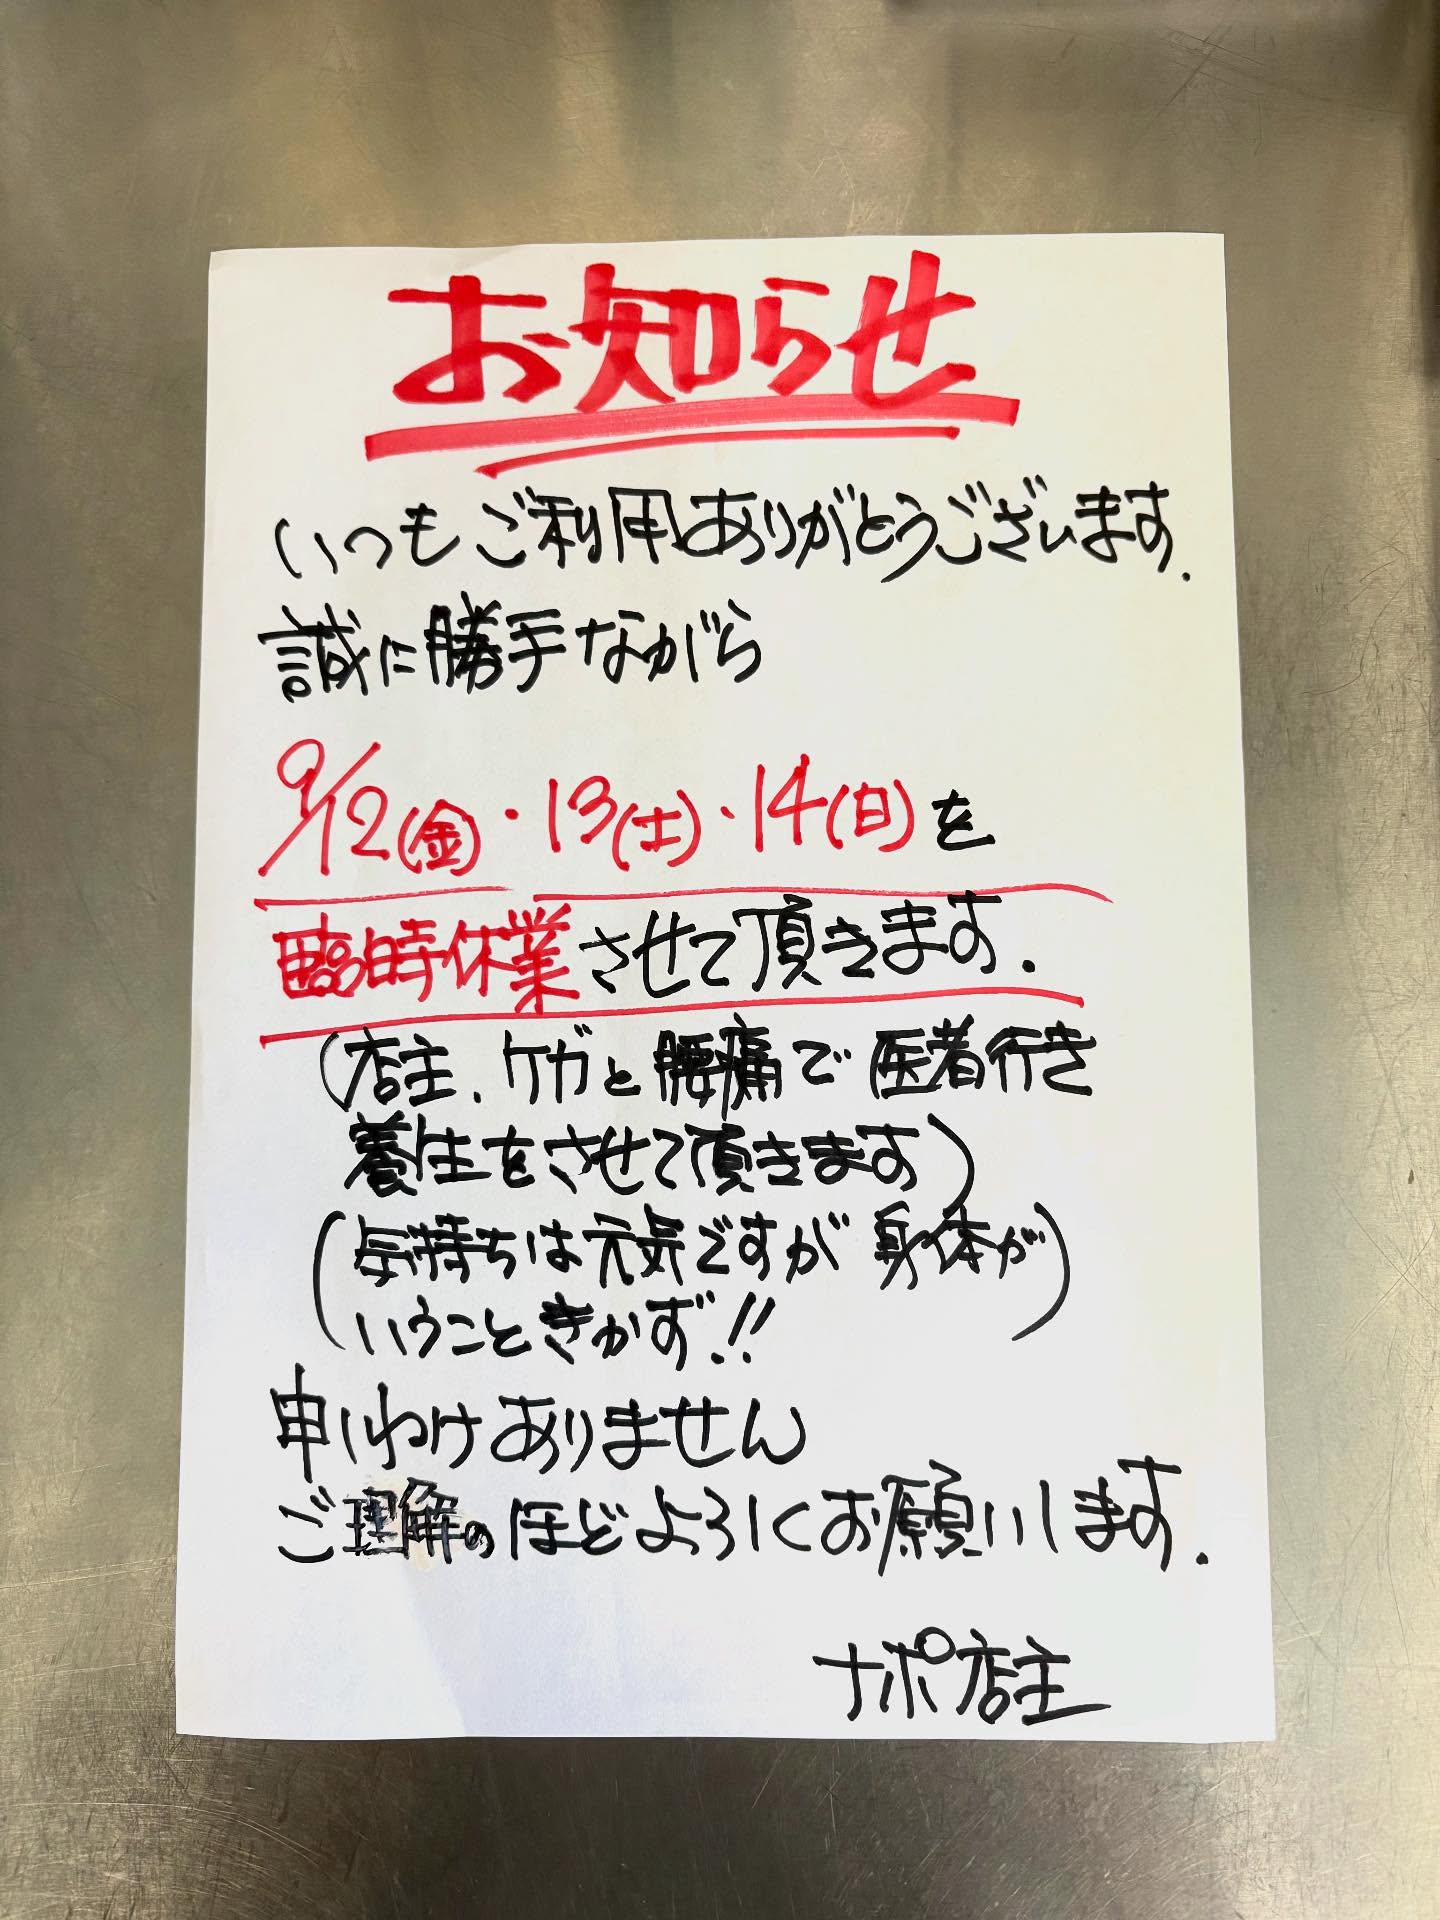 お知らせ
いつもご利用ありがとうございます.
誠に勝手ながら
9/12(金)・13(土)・14(日)を
臨時休業させて頂きます.
(店主、ケガと腰痛で医者行き
養生をさせて頂きます)
(気持ちは元気ですが身体が
いうこときかず!!)
申しわけありません
ご理解のほどよろしくお願いします.
ナポ店主